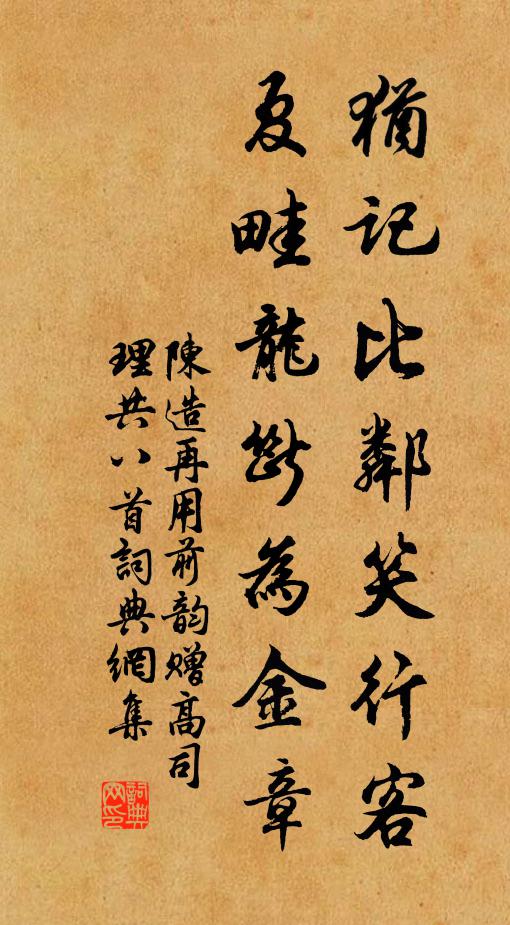 猶記比鄰笑行客
夏畦龍斷為金章
陳造再用前韵贈高司
理共八首詞典網集
詞典
网印